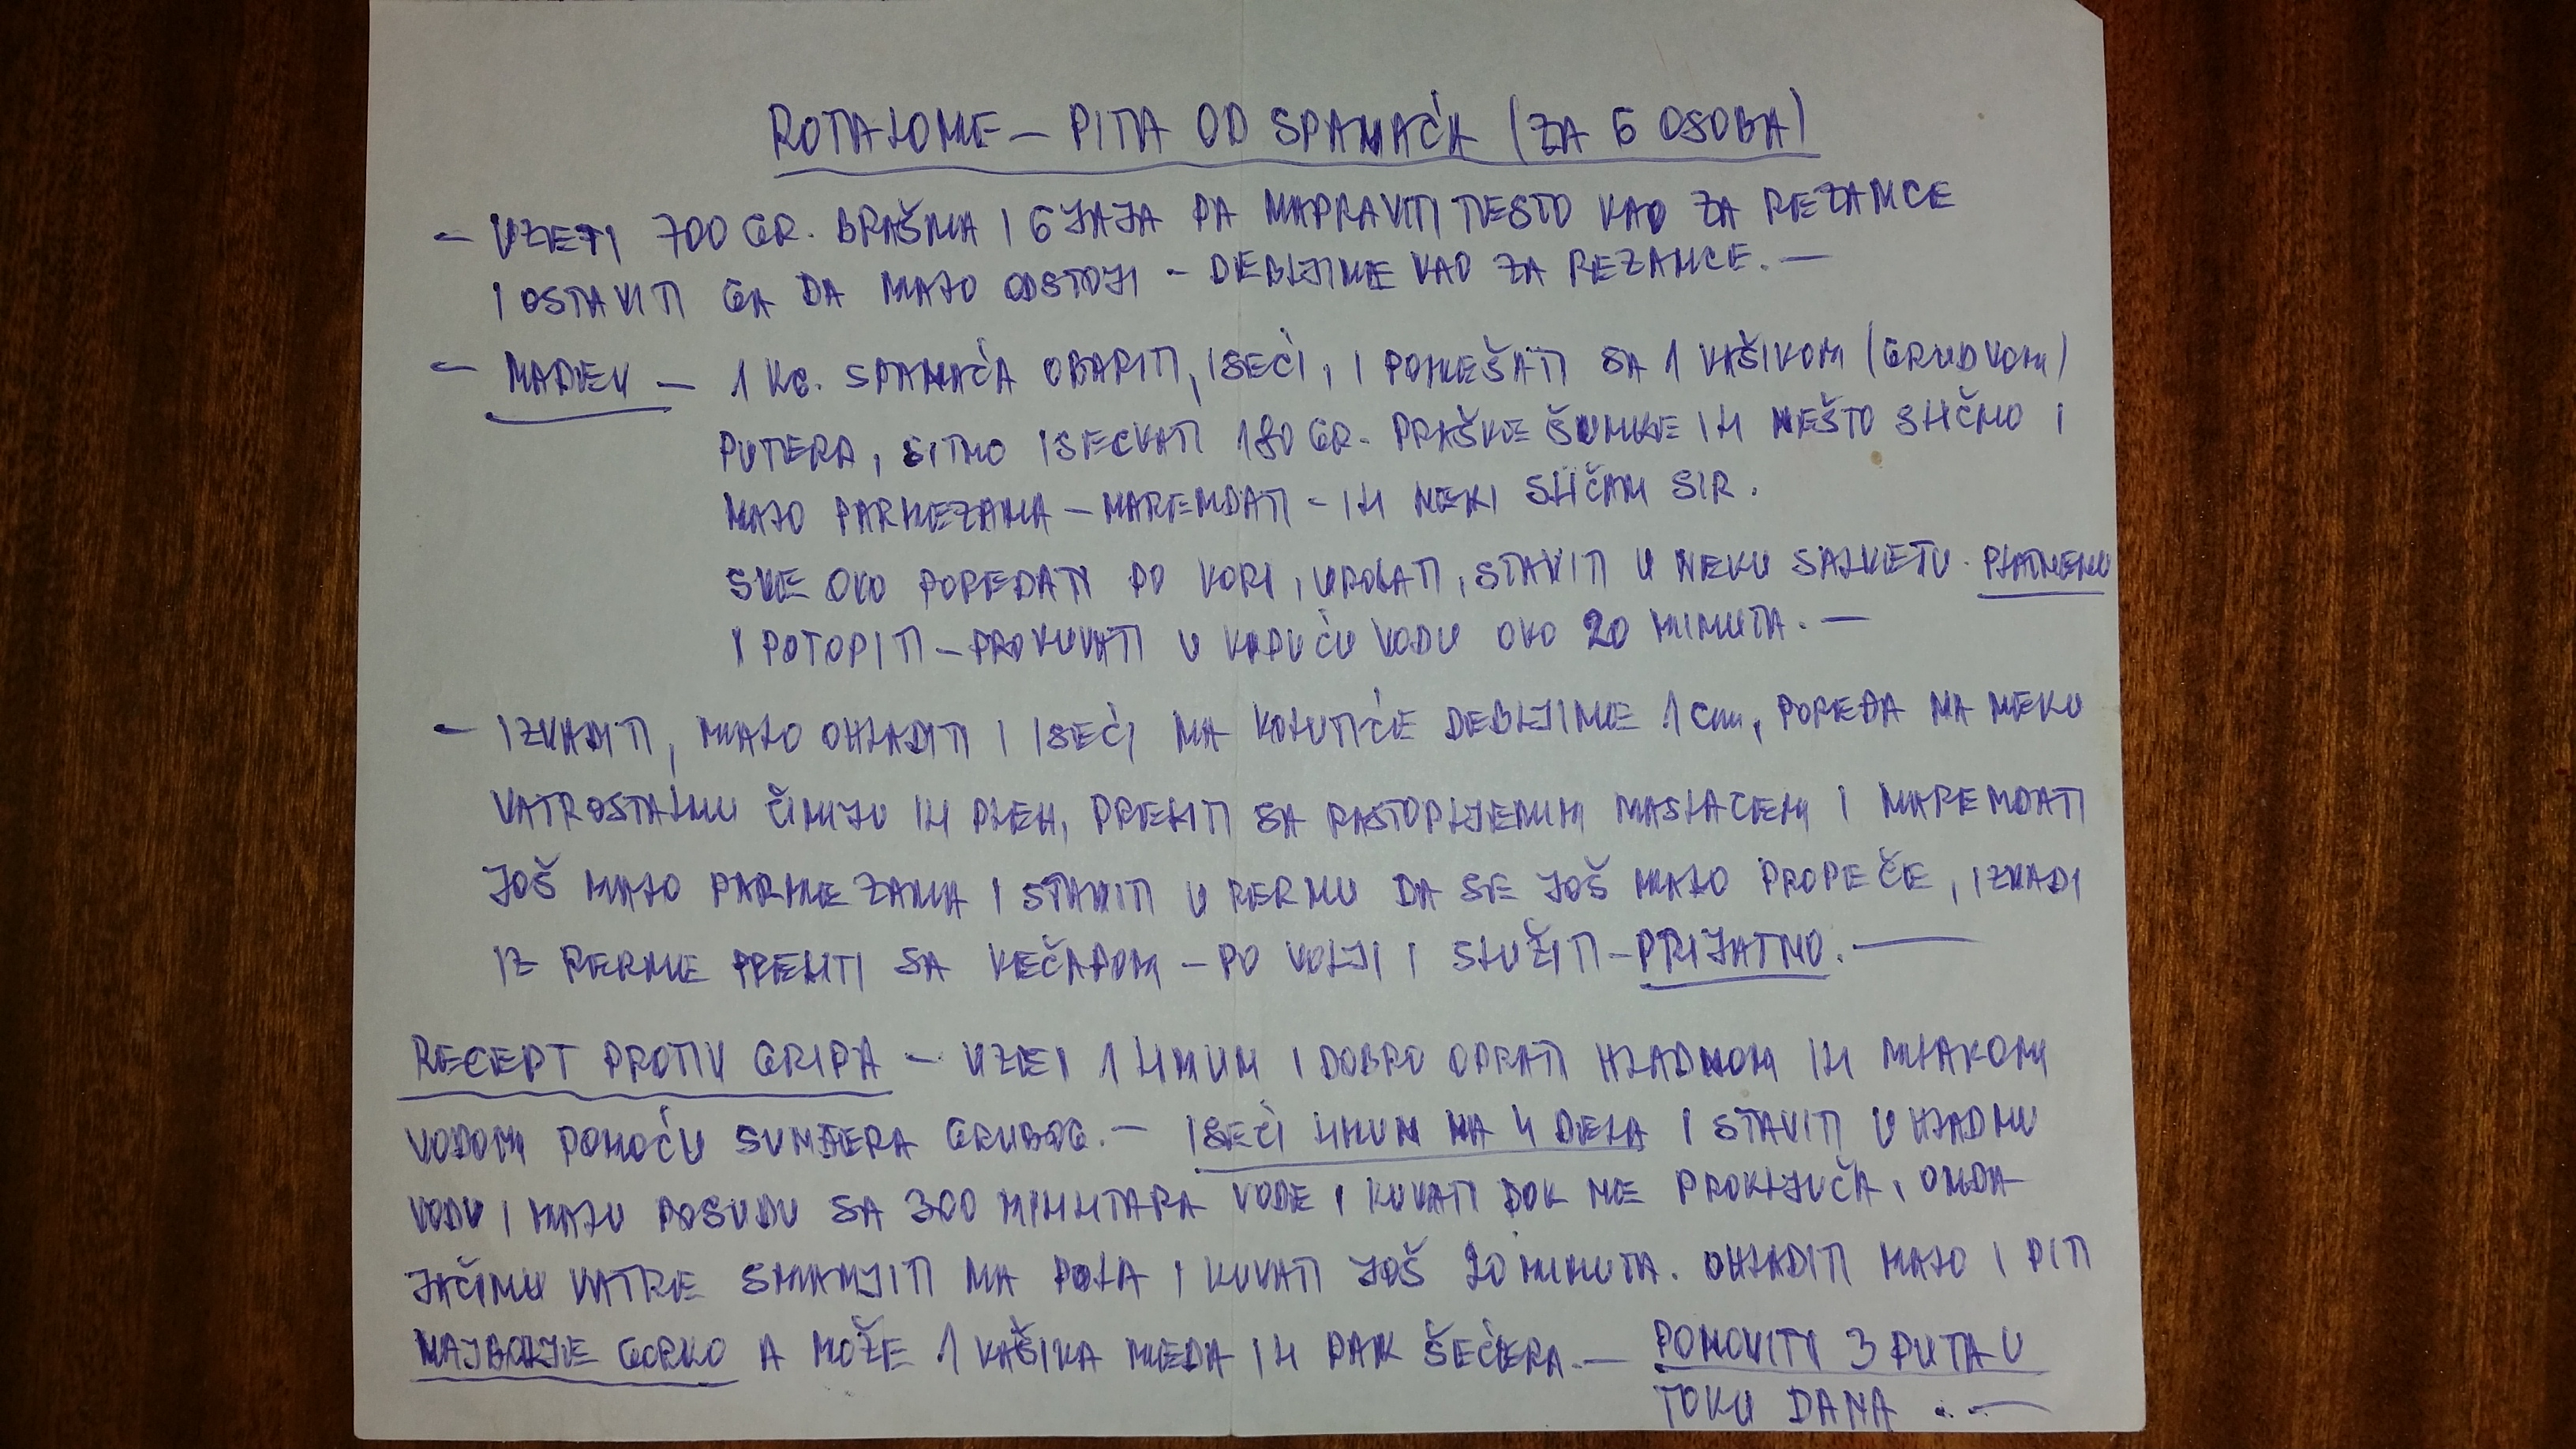 ROTALOME - PITA OD SPANAĆA (ZA 6 OSOBA)
- UZETI 700 GR. BRAŠNA I 6 JAJA DA NAPRAVITI TESTO KAO ZA REZANCE
I OSTAVITI GA DA MALO ODSTOJI - DEBLJINE KAO ZA REZANCE. -
- NADEV - 1 KG. SPANAĆA OBARITI, ISEĆI, I POMEŠATI SA 1 KAŠIKOM (GRUDVOM)
PUTERA, SITNO ISECKATI 150 GR. PRAŠKE ŠUNKE ILI NEŠTO SLIČNO I
MALO PARMEZANA - NARENDATI - ILI NEKI SLIČNI SIR.
SVE OVO POREDATI PO KORI, UROLATI, STAVITI U NEKU SALVETU PLATNENU
I POTOPITI - PROKUVATI U KLJUČU VODU OKO 20 MINUTA. -
- IZVADITI, MALO OHLADITI I ISEĆI NA KOMUTIĆE DEBLJINE 1 cm, POREĐA NA NEKU
VATROSTALNU ČINIJU ILI PLEH, PRELITI SA RASTOPLJENIM MASLACEM I NARENDATI
JOŠ MALO PARMEZANA I STAVITI U RERNU DA SE JOŠ MALO PROPEČE, IZVADI
IZ RERNE PRELITI SA KEČAPOM - PO VOLJI I SLUŽITI - PRIJATNO. -
RECEPT PROTIV GRIPA - UZETI 1 LIMUN I DOBRO OPRATI HLADNOM ILI MLAKOM
VODOM POMOĆU SUNĐERA GRUBOG. - ISEĆI LIMUN NA 4 DELA I STAVITI U HLADNU
VODU I MALO POSUDU SA 300 MILILITARA VODE I KUVATI DOK NE PROKLJUČA, ONDA
JAČINU VATRE SMANJITI NA POLA I KUVATI JOŠ 20 MINUTA. OHLADITI MALO I PITI
NAJBOLJE GORKO A MOŽE 1 KAŠIKA MEDA ILI PAK ŠEĆERA. - PONOVITI 3 PUTA U
TOKU DANA. -